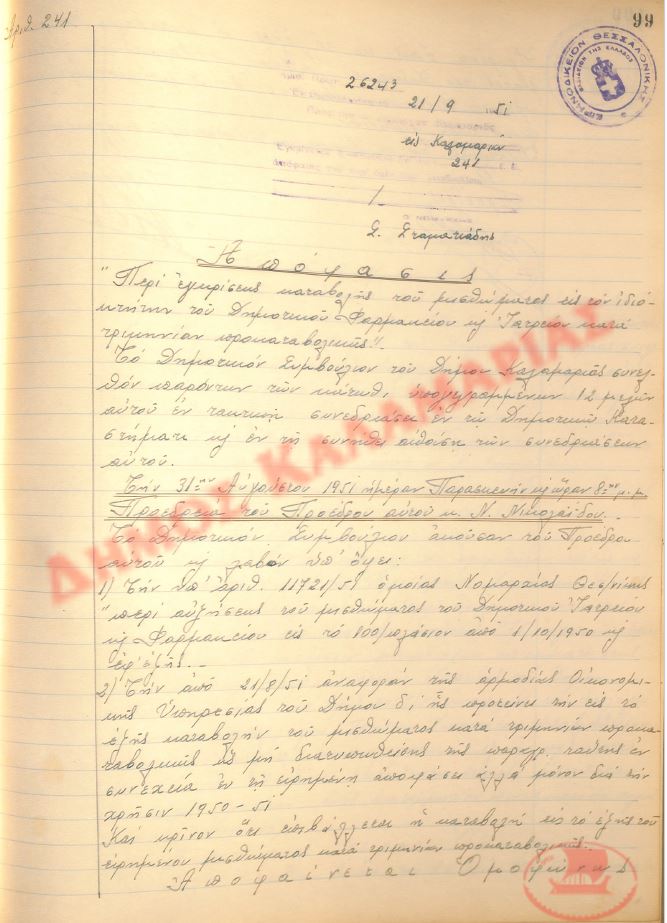 Αριθ. 241
99
ΕΙΡΗΝΟΔΙΚΕΙΟΝ ΘΕΣΣΑΛΟΝΙΚΗΣ
ΒΑΣΙΛΕΙΟΝ ΤΗΣ ΕΛΛΑΔΟΣ
26243
21/9 51
εις Καλαμαριάν
241
Σ. Σταματιάδης
Απόφασις
"Περί ἐγκρίσεως καταβολῆς τοῦ μισθώματος εἰς τόν ἰδιο-
κτήτην τοῦ Δημοτικοῦ Φαρμακείου κ Ἰατρείου κατά
τριμηνίαν προκαταβολικῶς".
Τό Δημοτικόν Συμβούλιον τοῦ Δήμου Καλαμαριᾶς συνελ-
θόν παρόντων τῶν κάτωθι ὑπογεγραμμένων 12 μελῶν
αὐτοῦ ἐν τακτικῇ συνεδριάσει ἐν τῷ Δημοτικῷ Κατα-
στήματι κ ἐν τῇ συνήθει αἰθούσῃ τῶν συνεδριάσεων
αὐτοῦ.
Τήν 31ην Αὐγούστου 1951 ἡμέραν Παρασκευήν κ ὥραν 8ην μ.μ.
Προεδρείᾳ τοῦ Προέδρου αὐτοῦ κ. Ν. Νικολαΐδου.
Τό Δημοτικόν Συμβούλιον ἀκοῦσαν τοῦ Προέδρου
αὐτοῦ κ λαβόν ὑπ' ὄψει:
1) Τήν ὑπ' ἀριθ. 11721/51 ὁμοίας Νομαρχίας Θεσ/νίκης
"περί αὐξήσεως τοῦ μισθώματος τοῦ Δημοτικοῦ Ἰατρείου
κ Φαρμακείου εἰς τό 100/πλάσιον ἀπό 1/10/1950 κ
ἐφ' ἑξῆς.-
2) Τήν ἀπό 21/8/51 ἀναφοράν τῆς ἁρμοδίας Οἰκονομι-
κῆς Ὑπηρεσίας τοῦ Δήμου δι' ἧς προτείνει τήν εἰς τό
ἑξῆς καταβολήν τοῦ μισθώματος κατά τριμηνίαν προκα-
ταβολικῶς ὡς μή διατυπωθείσης τῆς παραγρ. ταύτης ἐν
συνεχείᾳ ἐν τῇ εἰρημένῃ ἀποφάσει ἀλλά μόνον διά τήν
χρῆσιν 1950-51
Καί κρῖνον ὅτι ἐπιβάλλεται ἡ καταβολή εἰς τό ἑξῆς τοῦ
εἰρημένου μισθώματος κατά τριμηνίαν προκαταβολικῶς.
Ἀποφαίνεται Ὁμοφώνως
ΔΗΜΟΣ ΚΑΛΑΜΑΡΙΑΣ